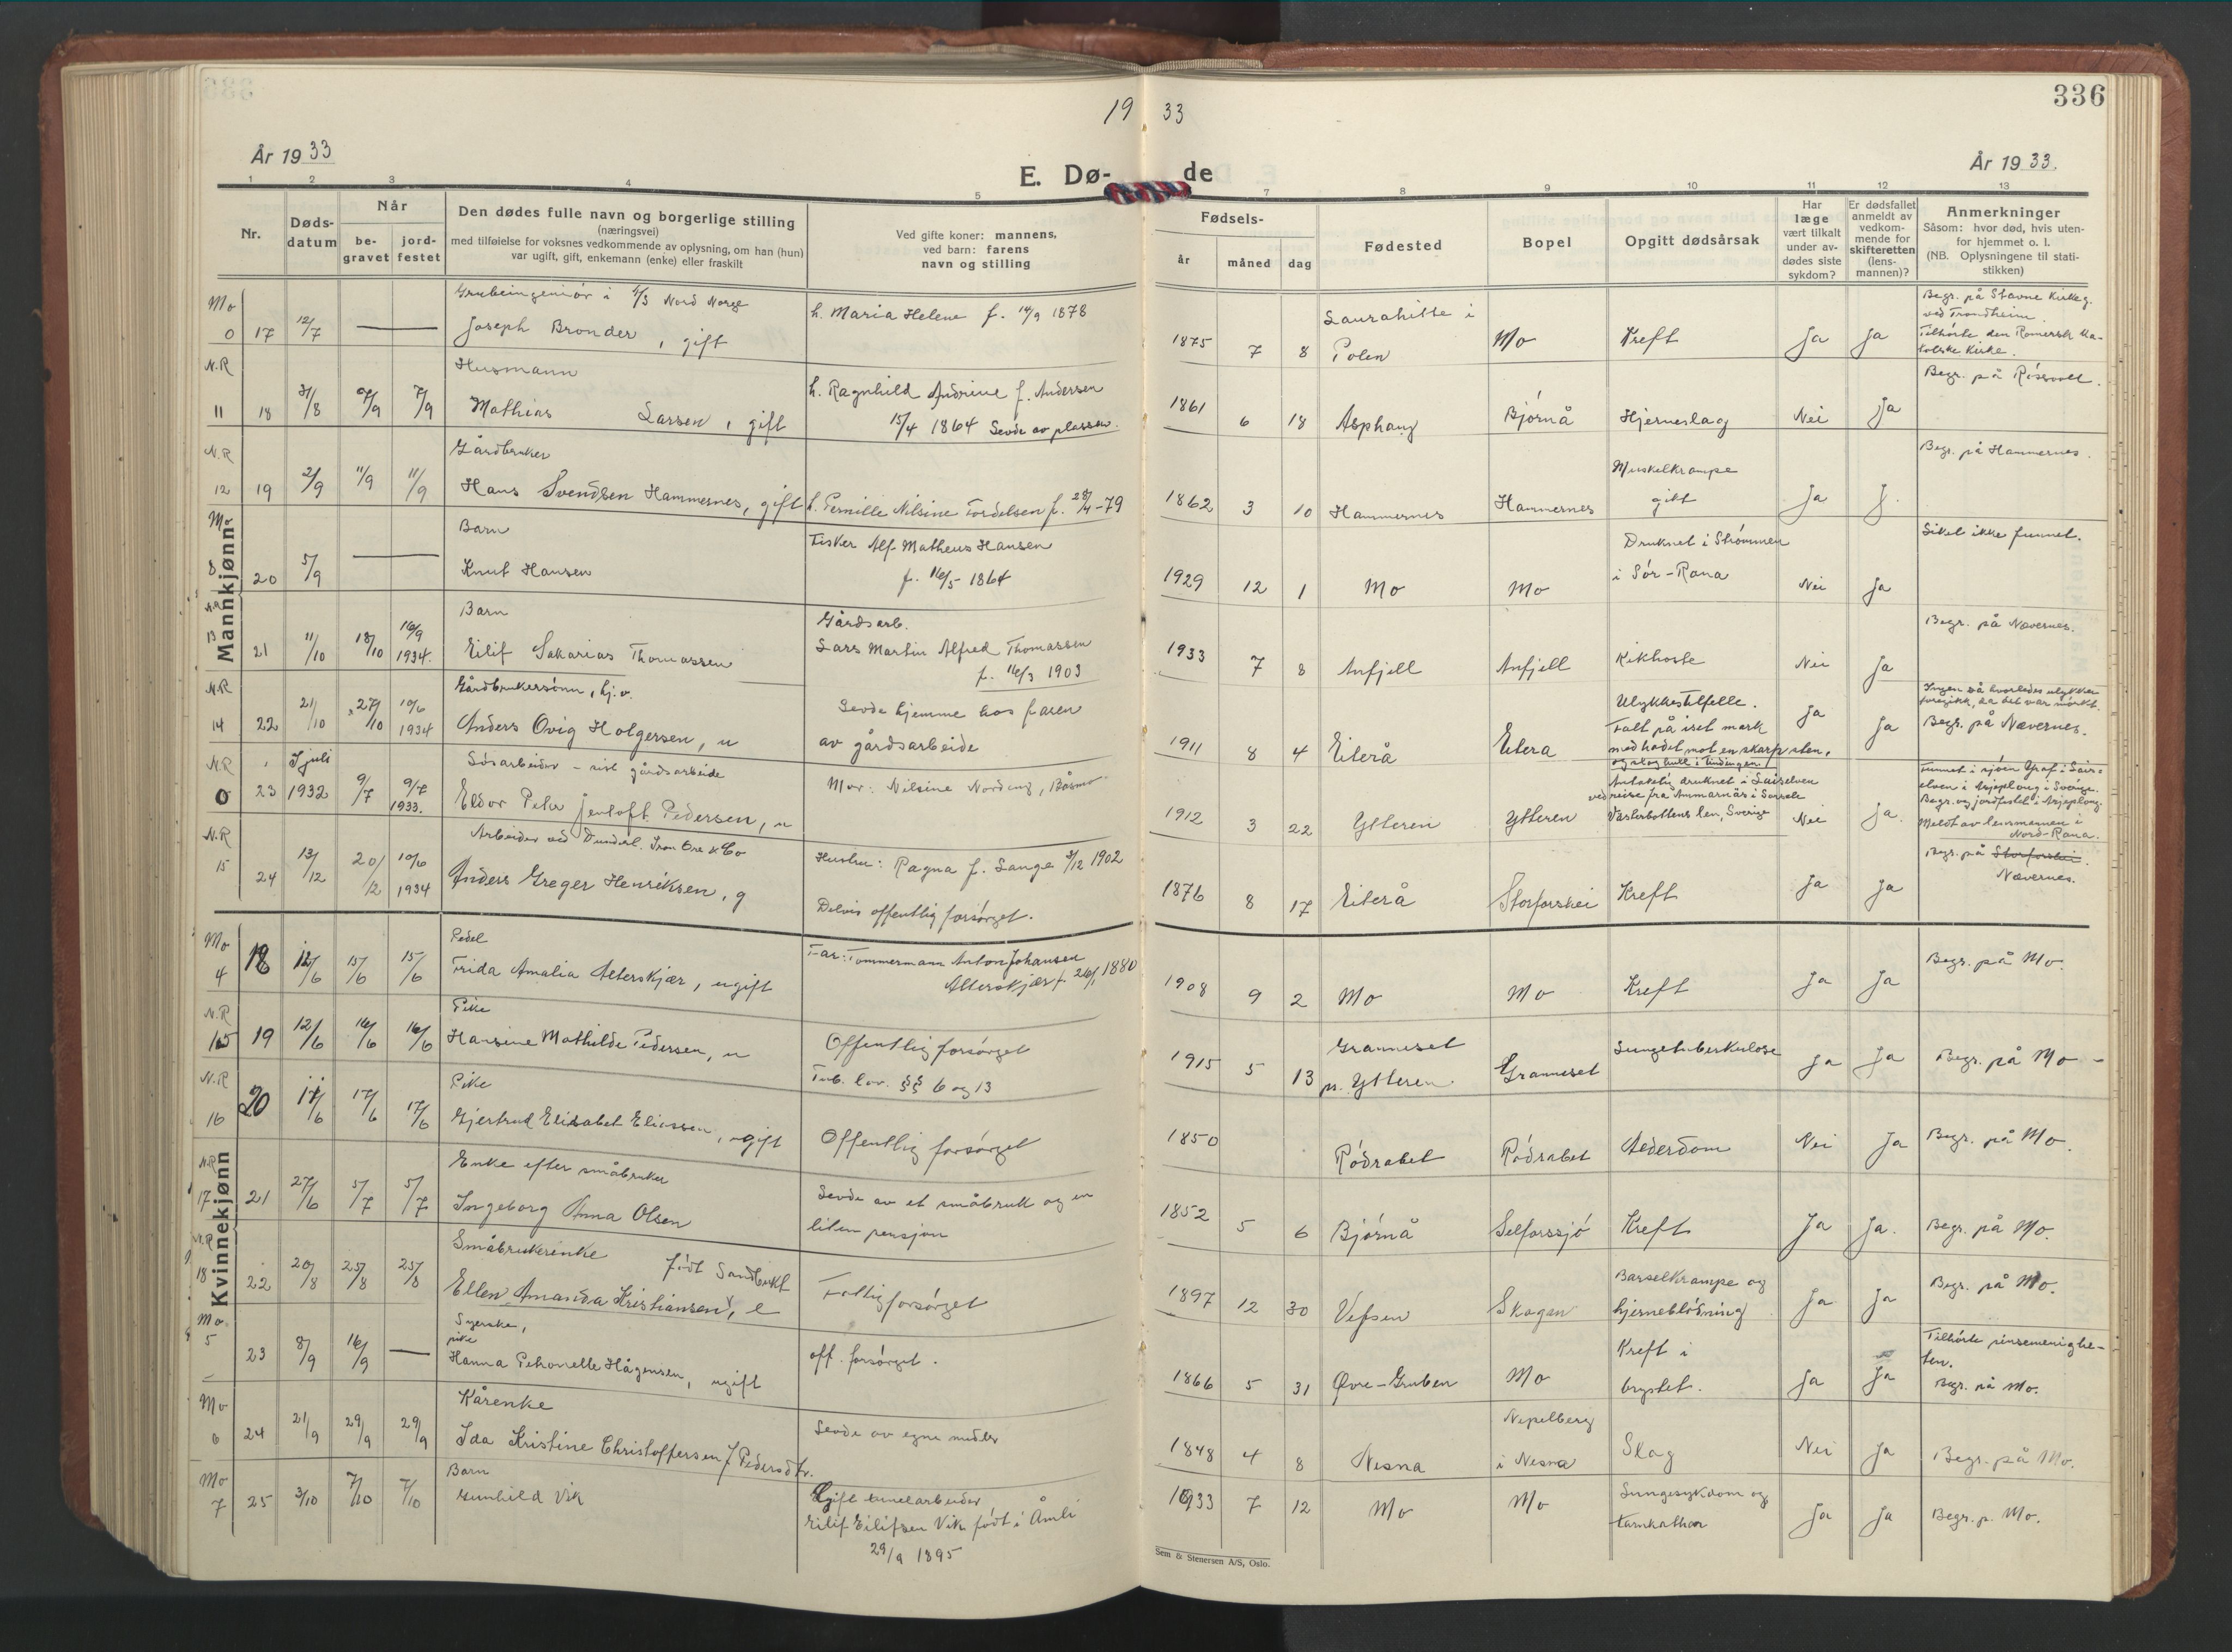 336
19 33
År 1933
År 1933.
E. Dø- de
1 2 3 4 5 7 8 9 10 11 12 13
Nr.
Døds-
datum
Når
be-
gravet
jord-
festet
Den dødes fulle navn og borgerlige stilling
(næringsvei)
med tilføielse for voksnes vedkommende av oplysning, om han (hun)
var ugift, gift, enkemann (enke) eller fraskilt
Ved gifte koner: mannens,
ved barn: farens
navn og stilling
Fødsels-
år måned dag
Fødested
Bopel
Opgitt dødsårsak
Har
læge
vært tilkalt
under av-
dødes siste
sykdom?
Er dødsfallet
anmeldt av
vedkom-
mende for
skifteretten
(lens-
mannen)?
Anmerkninger
Såsom: hvor død, hvis uten-
for hjemmet o. l.
(NB. Oplysningene til stati-
stikken)
Mannkjønn
Mo
0 17 12/7 — Grubeingeniør i A/S Nord Norge
Joseph Bronder, gift
h. Maria Helene f. 14/9 1878
1875 7 8 Laurahitte i
Polen
Mo Kreft Ja Ja
Begr. på Stavne Kirkeg.
ved Trondheim.
Tilhørte den Romersk Ka-
tolske Kirke.
N.R
11 18 31/8 7/9 7/9 Husmann
Mathias Larsen, gift
h. Ragnhild Andrine f. Andersen
15/4 1864 Levde av plassen.
1861 6 18 Asphaug Bjørnå Hjerneslag Nei Ja
Begr. på Røsvoll.
N.R
12 19 2/9 11/9 11/9 Gårdbruker
Hans Svendsen Hammernes, gift
h. Pernille Nilsine Tordelsen f. 28/4-79
1862 3 10 Hammernes Hammernes
Muskelkrampe
gikt
Ja J.
Begr. på Hammernes.
Mo
8 20 5/9 — Barn
Knut Hansen
Fisker Alf Matheus Hansen
f. 16/5 1864
1929 12 1 Mo Mo
Druknet i Strømmen
i Sør-Rana
Nei Ja
Liket ikke funnet.
N.R
13 21 11/10 18/10 16/9
1934.
Barn
Eilif Sakarias Thomassen
Gårdsarb.
Lars Martin Alfred Thomassen
f. 16/3 1903
1933 7 8 Anfjell Anfjell Kikhoste Nei Ja
Begr. på Nævernes.
N.R
14 22 21/10 27/10 10/6
1934
Gårdbrukersønn, hj. v.
Anders Ovig Holgersen, u
Levde hjemme hos faren
av gårdsarbeide
1911 8 4 Eiterå Eitera
Ulykkestilfelle.
Falt på iset mark
med hodet mot en skarp sten,
og slog hull i tindingen.
Ja Ja
Ingen så hvorledes ulykken
foregikk, da det var mørkt.
Begr. på Nævernes.
N.R
0 23 7 juli
1932
9/7 9/7
1933.
Løsarbeider - sist gårdsarbeide
Eldor Peder Jentoft Pedersen, u
Mor: Nilsine Nordeng, Båsmo
1912 3 22 Ytteren Ytteren
Antakelig druknet i Laiselven
ved reise fra Ammarnäs i Sorsele
Västerbottens len, Sverige
Nei Ja.
elven i Arjeplog i Sverige.
Begr. og jordfestet i Arjeplog.
Meldt av lensmannen i
Nord-Rana.
N.R
15 24 13/12 20/12 10/6
1934
Arbeider ved Dunderl. Iron Ore & Co
Anders Greger Henriksen, g
Hustru: Ragna f. Lange 3/12 1902
Delvis offentlig forsørget.
1876 8 17 Eiterå Storforshei Kreft Ja Ja
Begr. på Storforshei.
Nævernes.
Kvinnekjønn
Mo
4 18 12/6 15/6 15/6 Pedel
Frida Amalia Alterskjær, ugift
Far: Tømmermann Anton Johansen
Alterskjær f. 26/1 1880
1908 9 2 Mo Mo Kreft Ja Ja
Begr. på Mo.
N.R
15 19 12/6 16/6 16/6 Pike
Hansine Mathilde Pedersen, u
Offentlig forsørget
Tub. lov. §§ 6 og 13
1915 5 13 Granneset
p. Ytteren.
Granneset Lungetuberkulose Ja Ja
Begr. på Mo -
N.R
16 20 11/6 17/6 17/6 Pike
Gjertrud Elisabet Eliassen, ugift
Offentlig forsørget
1850 Rødrabet Rødrabet Alderdom Nei Ja
Begr. på Mo.
N.R
17 21 27/6 5/7 5/7 Enke efter småbruker
Ingeborg Anna Olsen
Levde av et småbruk og en
liten pensjon
1852 5 6 Bjørnå Selforssjø Kreft Ja Ja.
Begr. på Mo.
N.R
18 22 20/8 25/8 25/8 Småbrukerenke
født Sandvikt
Ellen Amanda Kristiansen, e
Fattigforsørget
1897 12 30 Vefsen Skogan
Barselkrampe og
hjerneblødning
Ja Ja
Begr. på Mo.
Mo.
5 23 8/9 16/9 — Syerske,
pike
Hanna Petronelle Hågensen, ugift
off. forsørget.
1866 5 31 Øvre-Gruben Mo
Kreft i
brystet.
Ja Ja
Tilhørte pinsemenighe-
ten.
Begr. på Mo.
Mo
6 24 21/9 29/9 29/9 Kårenke
Ida Kristine Christoffersen f. Pedersdtr.
Levde av egne midler
1848 4 8 Nesna
Nepelberg
i Nesna
Slag Nei Ja
Begr. på Mo.
Mo
7 25 3/10 7/10 7/10 Barn
Gunhild Vik
Gift
Eilif Eilifsen Vik født i Åmli
29/9 1895
1933 7 12 Mo Mo
Lungesykdom og
tarmkathar
Ja Ja
Begr. p. Mo.
Sem & Stenersen A/S, Oslo.